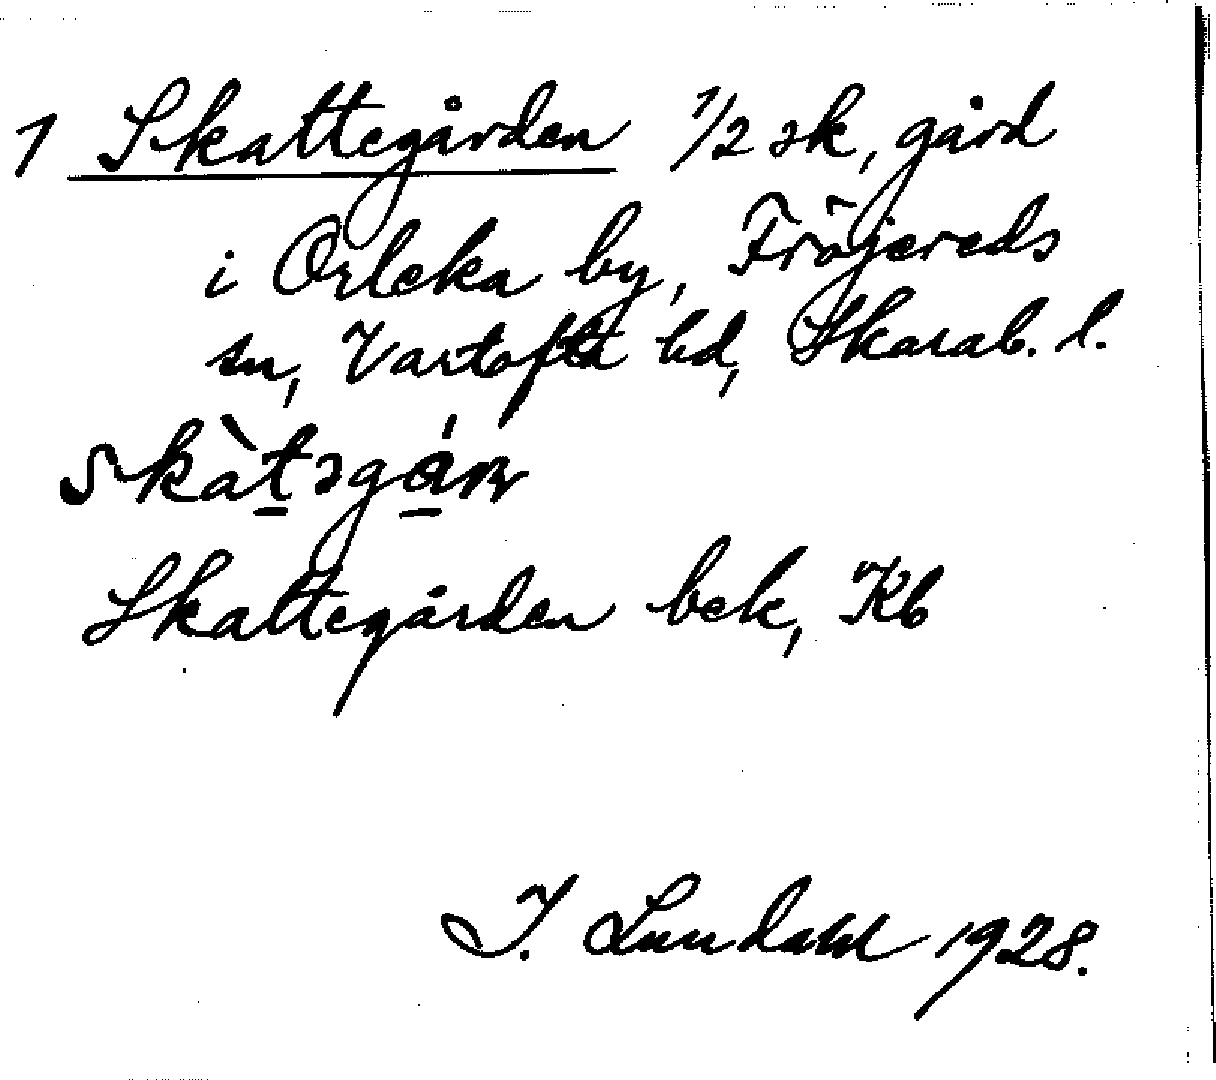 1 Skattegården 1/2 sk, gård
i Orleka by, Fröjereds
sn, Vartofta hd, Skarab. l.
skàt̲əgá̲ɳ
Skattegården bek, Kb
I. Lundahl 1928.